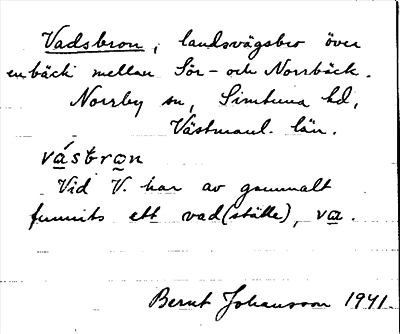 Vadsbron, landsvägsbro över
en bäck mellan Sör- och Norrbäck.
Norrby sn, Simtuna hd,
Västmanl. län.
vástron
Vid V. har av gammalt
funnits ett vad(ställe), va.
Bernt Johansson 1941.